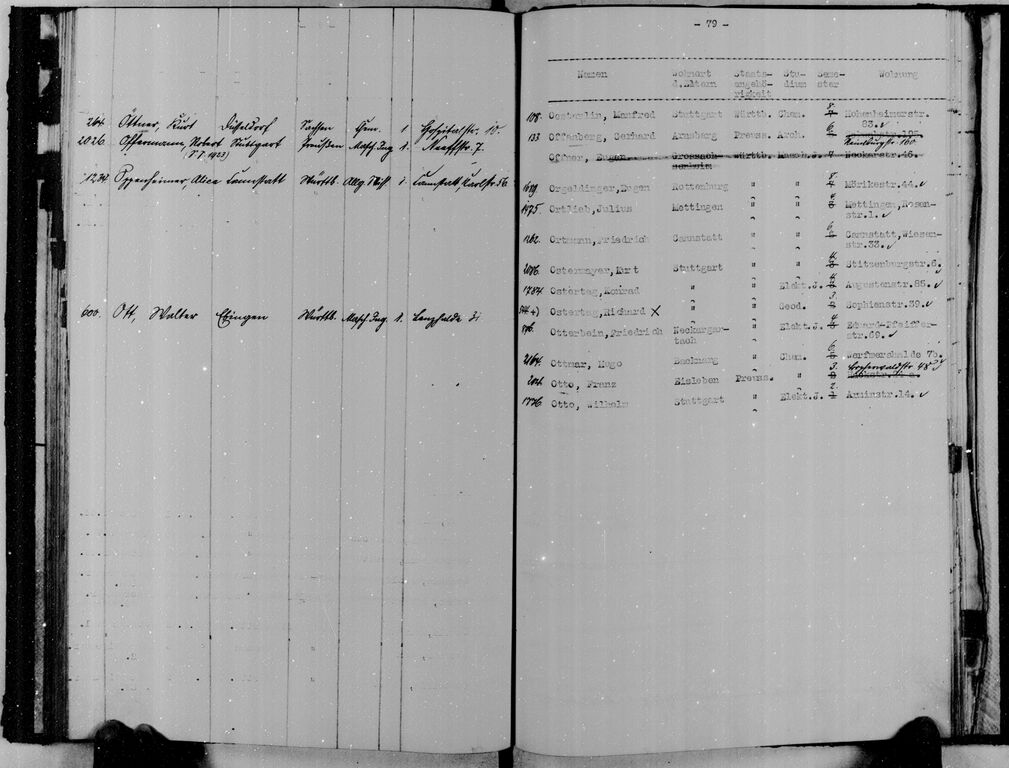 264. Öttner, Kurt Düsseldorf Sachsen Chem. 1 Hospitalstr. 10.
2026. Offermann, Robert Stuttgart Preußen Masch.Ing. 1. Neeffstr. 7.
1234. Oppenheimer, Alice Cannstatt Württb. Allg. 1. Cannstatt, Karlstr. 56
600. Ott, Walter Ebingen Württb. Masch.Ing. 1.
- 79 -
Namen Wohnort Staats- Stu- Seme- Wohnung
d.Eltern angehö- dium ster
rigkeit
108. Oesterlin, Manfred Stuttgart Württb. Chem. 8 Hohenheimerstr.
63.
133 Offenberg, Gerhard Arnsberg Preuss. Arch. 6
Offner, Eugen Grossach- Württb. Masch.J. 7 Neckarstr.46.
senheim
1689. Orgeldinger, Eugen Rottenburg " " 8 Mörikestr.44. ✓
1975. Ortlieb, Julius Mettingen " " Mettingen, Rosen-
str.1. ✓
1262. Ortmann, Friedrich Cannstatt " " 6 Cannstatt, Wiesen-
str.32. ✓
2086. Ostermayer, Kurt Stuttgart " " 4 Stitzenburgstr.6.
1784. Ostertag, Konrad " " Elekt.J. 4 Augustenstr.85. ✓
Ostertag, Richard X " " Geod. 3 Sophienstr.39. ✓
Otterbein, Friedrich Neckargar- " Elekt.J. 4 Eduard-Pfeiffer-
tach str.69. ✓
2164. Ottmar, Hugo Backnang " Chem. 6 Werfmershalde 7b.
204. Otto, Franz Eisleben Preuss. " 3. 48
1776 Otto, Wilhelm Stuttgart " Elekt.J. 2. Arminstr.14. ✓